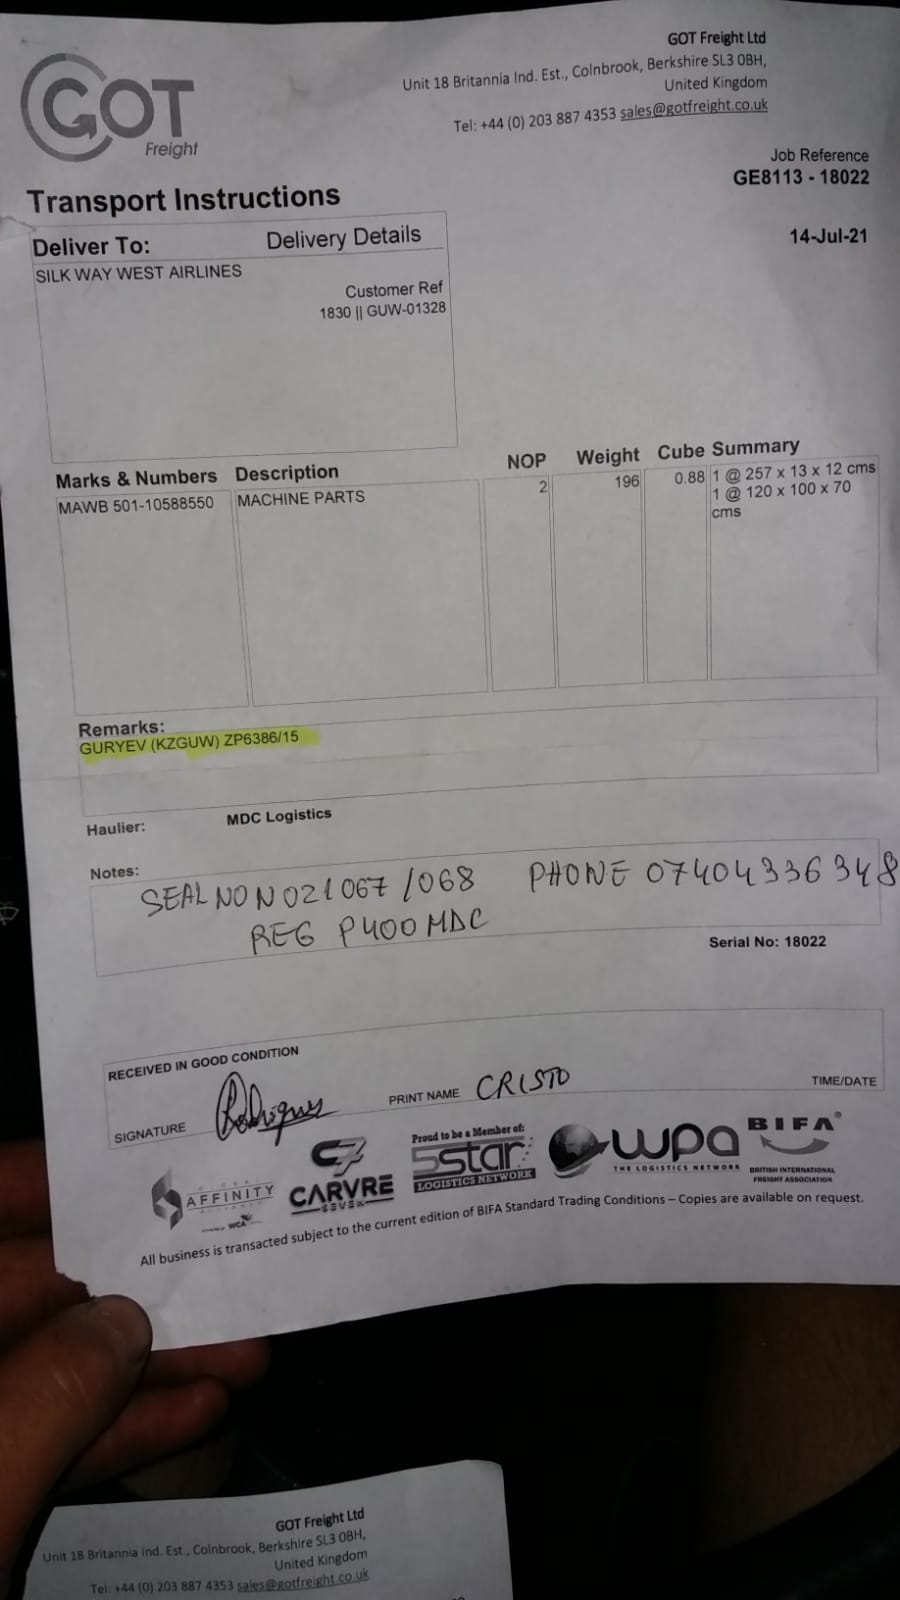 GOT
Freight
GOT Freight Ltd
Unit 18 Britannia Ind. Est., Colnbrook, Berkshire SL3 0BH,
United Kingdom
Tel: +44 (0) 203 887 4353 sales@gotfreight.co.uk
Job Reference
GE8113 - 18022
14-Jul-21
Transport Instructions
Deliver To: Delivery Details
SILK WAY WEST AIRLINES
Customer Ref
1830 || GUW-01328
Marks & Numbers Description NOP Weight Cube Summary
MAWB 501-10588550 MACHINE PARTS 2 196 0.88 1 @ 257 x 13 x 12 cms
1 @ 120 x 100 x 70
cms
Remarks:
GURYEV (KZGUW) ZP6386/15
Haulier: MDC Logistics
Notes:
SEAL NO N021067/068 PHONE 07404336348
REG P400MDC
Serial No: 18022
RECEIVED IN GOOD CONDITION
SIGNATURE Rodrigues PRINT NAME CRISTO TIME/DATE
GLOBAL AFFINITY ALLIANCE
WCA
C7 CARVRE SEVEN
Proud to be a Member of:
5star
LOGISTICS NETWORK
wpa
THE LOGISTICS NETWORK
BIFA
BRITISH INTERNATIONAL
FREIGHT ASSOCIATION
All business is transacted subject to the current edition of BIFA Standard Trading Conditions – Copies are available on request.
GOT Freight Ltd
Unit 18 Britannia Ind. Est., Colnbrook, Berkshire SL3 0BH,
United Kingdom
Tel: +44 (0) 203 887 4353 sales@gotfreight.co.uk